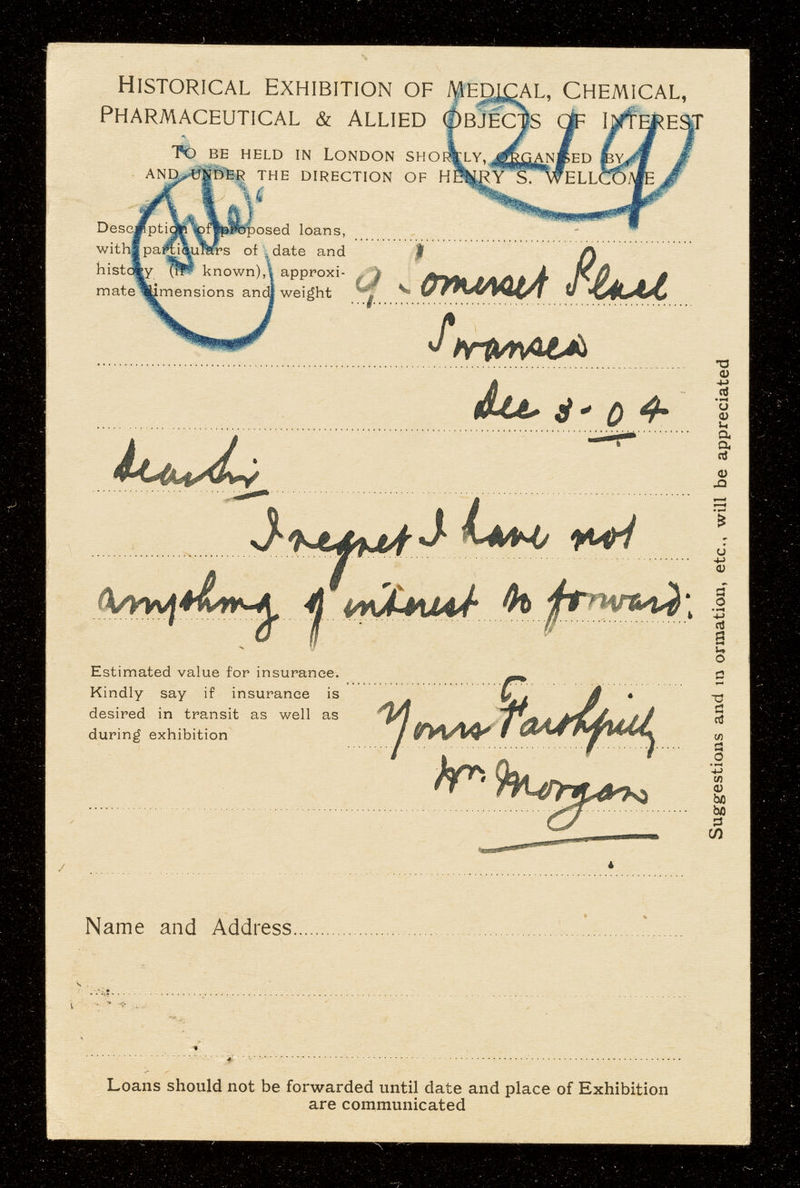 HISTORICAL EXHIBITION OF MEDICAL, CHEMICAL,
PHARMACEUTICAL & ALLIED OBJECTS OF INTEREST
TO BE HELD IN LONDON SHORTLY, ORGANISED BY,
AND UNDER THE DIRECTION OF HENRY S. WELLCOME
219
File
Description of proposed loans,
with particulars of date and
history (if known), approxi-
mate dimensions and weight
9 Somerset Place
Swansea
Dec 3-04
Dear Sir
I regret I have not
anything of interest to forward:
Estimated value for insurance.
Kindly say if insurance is
desired in transit as well as
during exhibition
Yours Faithfully
Wm. Morgan
Name and Address
Loans should not be forwarded until date and place of Exhibition
are communicated
Suggestions and in ormation, etc., will be appreciated